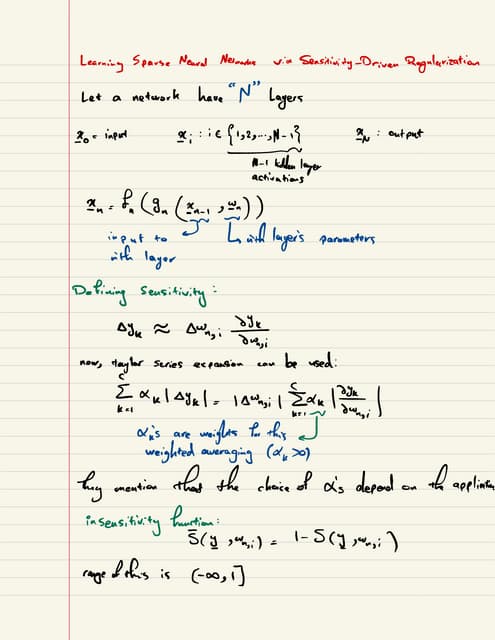 Learning Sparse Neural Networks via Sensitivity-Driven Regularization
Let a network have "N" Layers
x₀ = input    xᵢ : i ∈ {1,2,...,N-1}    x_N : output
N-1 hidden layer
activations
xₙ = fₙ(gₙ(xₙ₋₁, wₙ))
input to    nth layer's parameters
nth layer
Defining Sensitivity:
Δyₖ ≈ Δwₙ,ᵢ ∂yₖ/∂wₙ,ᵢ
now, taylor series expansion can be used:
∑_{k=1}^{C} αₖ|Δyₖ| = |Δwₙ,ᵢ| ∑_{k=1}^{C} αₖ |∂yₖ/∂wₙ,ᵢ|
αₖ's are weights for this
weighted averaging (αₖ>0)
They mention that the choice of α's depend on the
insensitivity function:
S̄(y, wₙ,ᵢ) = 1 - S(y, wₙ,ᵢ)
range of this is (-∞, 1]